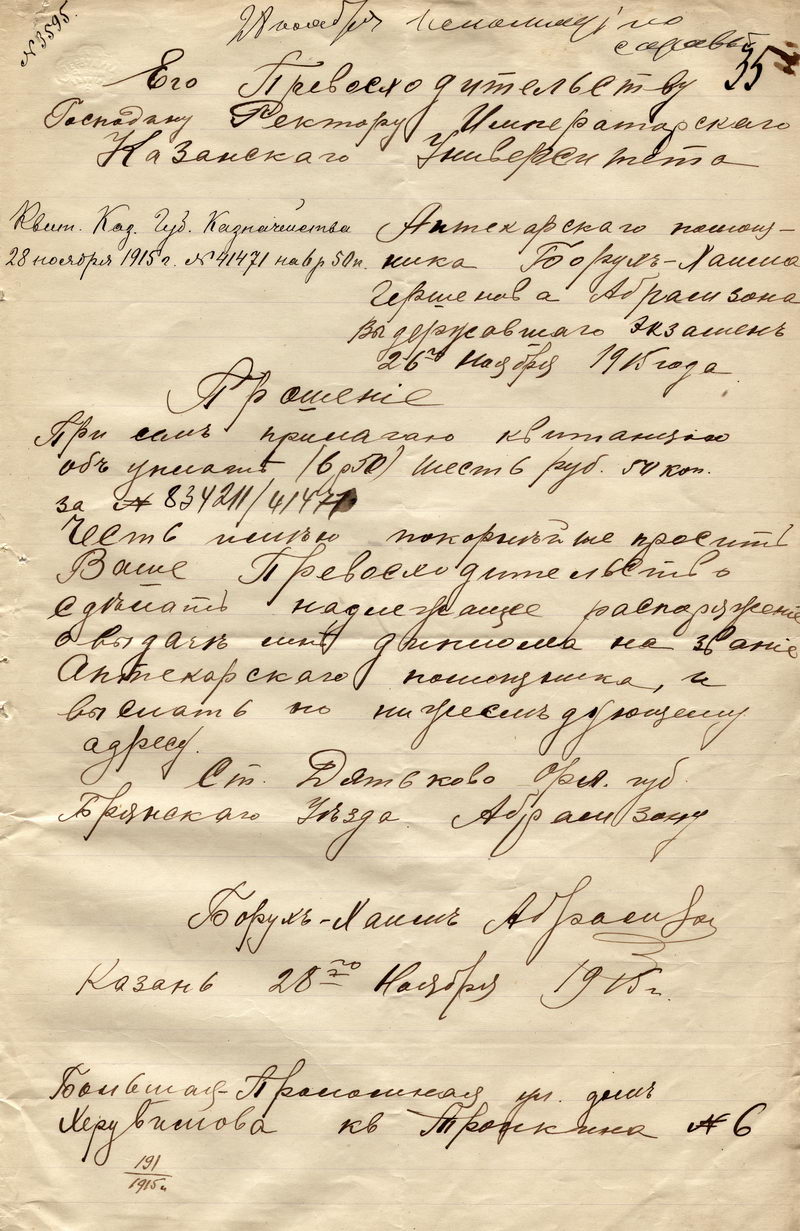 № 3595.
28 ноября
35
Его Превосходительству
Господину Ректору Императорскаго
Казанскаго Университета
Квит. Каз. Губ. Казначейства
28 ноября 1915 г. № 41471 на 6 р 50 к.
Аптекарскаго помощ-
ника Борухъ-Хаима
Гершенова Абрамзона
выдержавшаго экзаменъ
26го Ноября 1915 года
Прошеніе
При семъ прилагаю квитанцію
объ уплатѣ (6 р 50) шесть руб. 50 коп.
за № 834211/41471
Честь имѣю покорнѣйше просить
Ваше Превосходительство
сдѣлать надлежащее распоряженіе
о выдачѣ мнѣ диплома на званіе
Аптекарскаго помощника, и
выслать по нижеслѣдующему
адресу.
Ст. Дятьково Орл. губ.
Брянскаго Уѣзда Абрамзону
Борухъ-Хаимъ Абрамзон
Казань 28го Ноября 1915 г.
Большая-Проломная ул. домъ
Херувимова кв Тропкина № 6
191
1915 г.